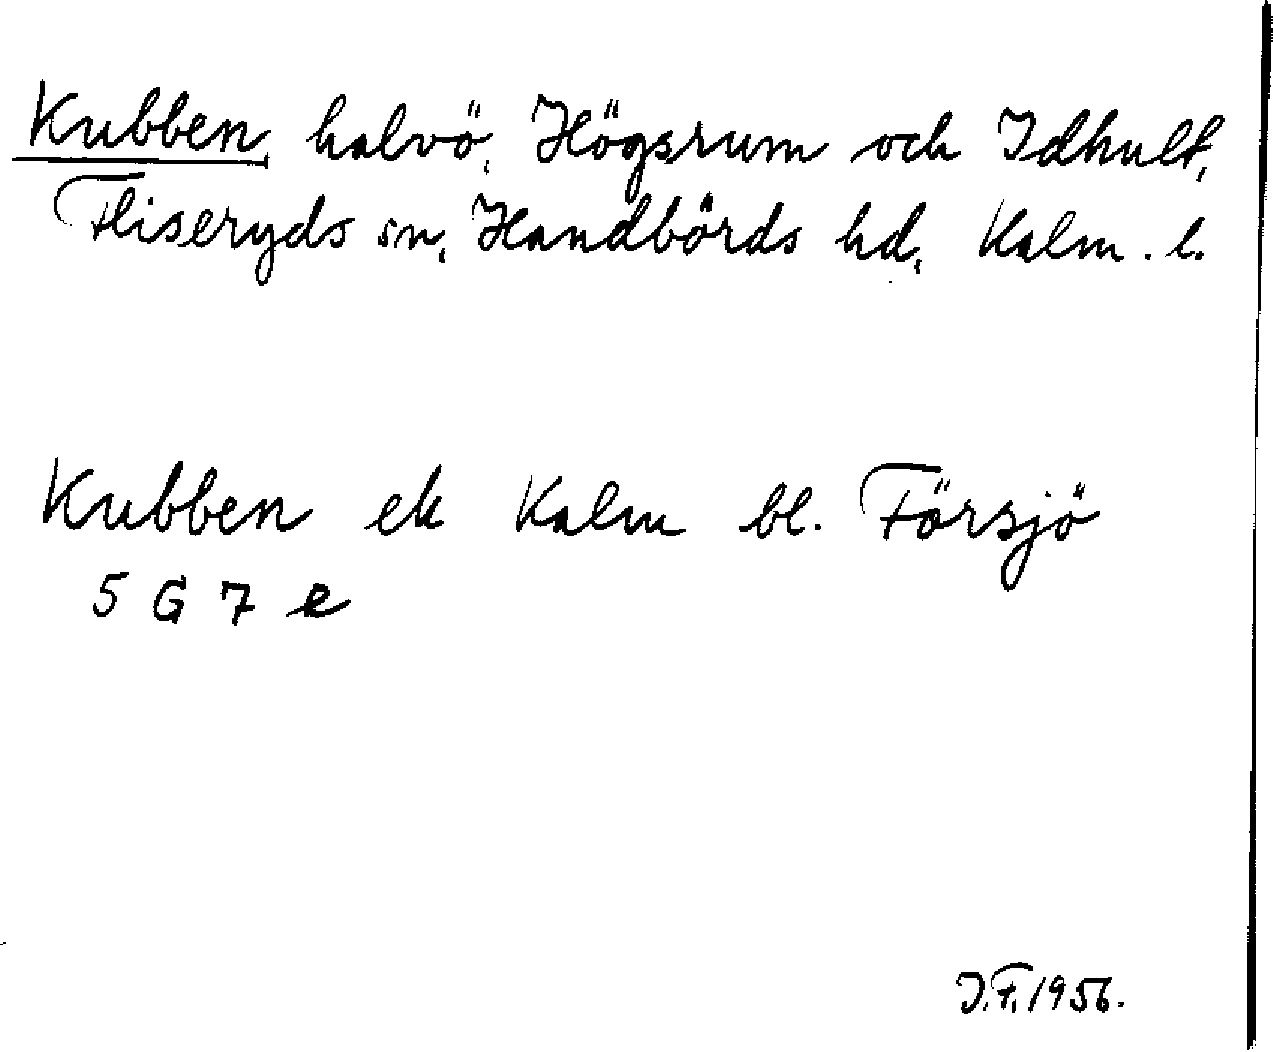 Kubben, halvö, Högsrum och Idhult,
Fliseryds sn, Handbörds hd, Kalm. l.
Kubben ek Kalm bl. Försjö
5 G 7 e
J.F. 1956.